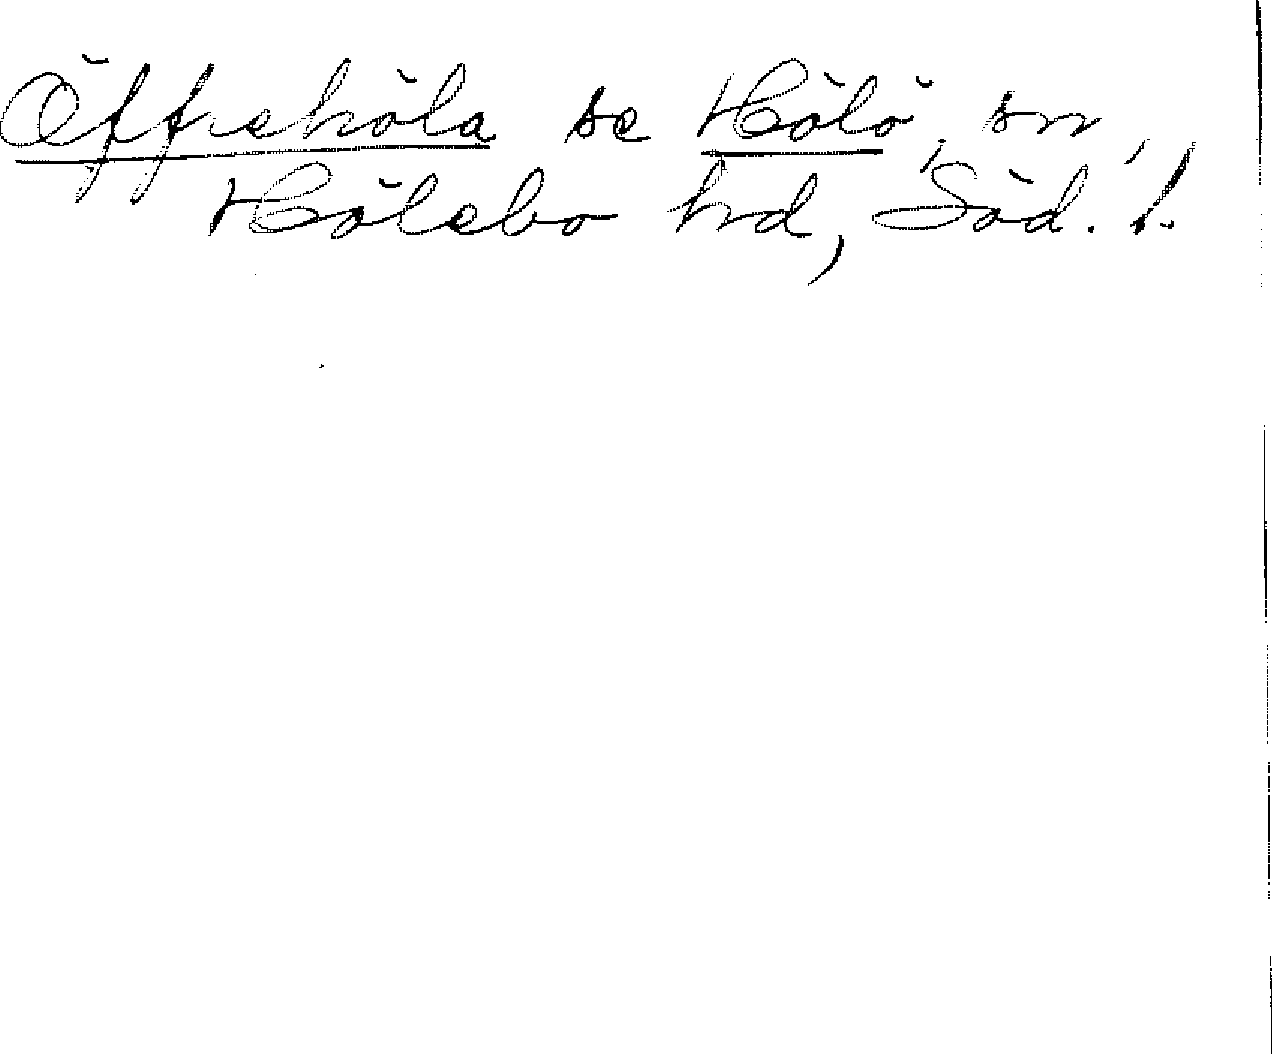 Öffrehöla se Hölö, sn,
Hölebo hd, Söd. l.